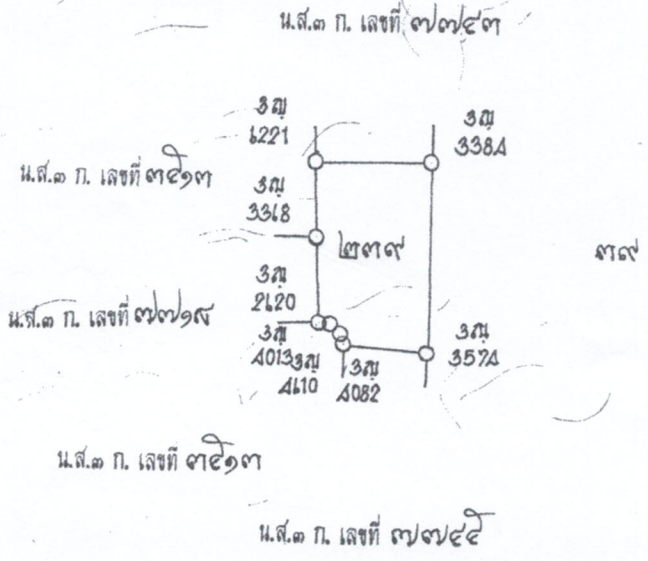 น.ส.๓ ก. เลขที่ ๗๗๔๓
3ญ
6221
3ญ
3384
น.ส.๓ ก. เลขที่ ๓๕๑๓
3ญ
3368
๒๓๙
๓๙
3ญ
2620
น.ส.๓ ก. เลขที่ ๗๗๑๘
3ญ
4013
3ญ
4610
3ญ
4082
3ญ
3574
น.ส.๓ ก. เลขที่ ๓๕๑๓
น.ส.๓ ก. เลขที่ ๗๗๔๕